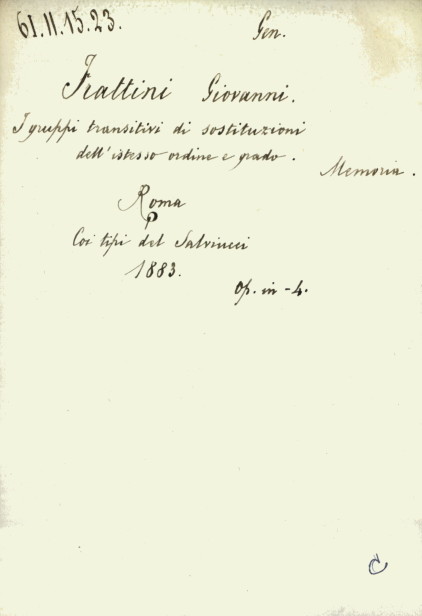 61.II.15.23.
Gen.
Frattini Giovanni.
I gruppi transitivi di sostituzioni
dell'istesso ordine e grado.
Memoria.
Roma
Coi tipi del Salviucci
1883.
Op. in-4.
C